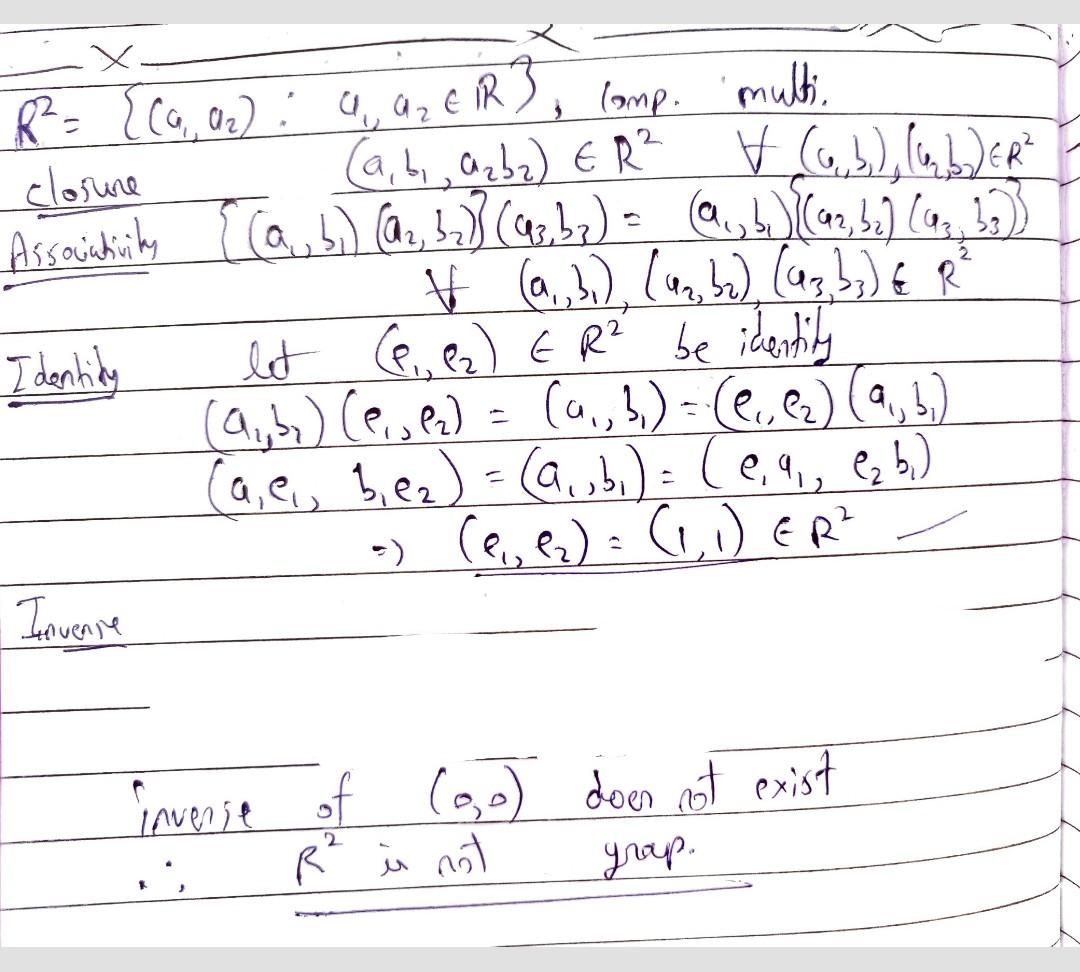 R² = {(a₁, a₂) : a₁, a₂ ∈ ℝ}, comp. multi.
closure (a₁b₁, a₂b₂) ∈ R² ∀ (a₁,b₁), (a₂,b₂) ∈ R²
Associativity {(a₁,b₁) (a₂,b₂)} (a₃,b₃) = (a₁,b₁) {(a₂,b₂) (a₃,b₃)}
∀ (a₁,b₁), (a₂,b₂), (a₃,b₃) ∈ R²
Identity let (e₁, e₂) ∈ R² be identity
(a₁,b₁) (e₁, e₂) = (a₁, b₁) = (e₁, e₂) (a₁, b₁)
(a₁e₁, b₁e₂) = (a₁, b₁) = (e₁a₁, e₂b₁)
=> (e₁, e₂) = (1, 1) ∈ R²
Inverse
inverse of (0,0) does not exist
∴ R² is not group.